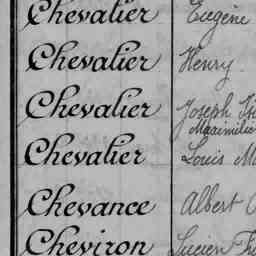 Chevalier Eugène
Chevalier Henry
Chevalier Joseph
Maximilien
Chevalier Louis
Chevance Albert
Cheviron Lucien